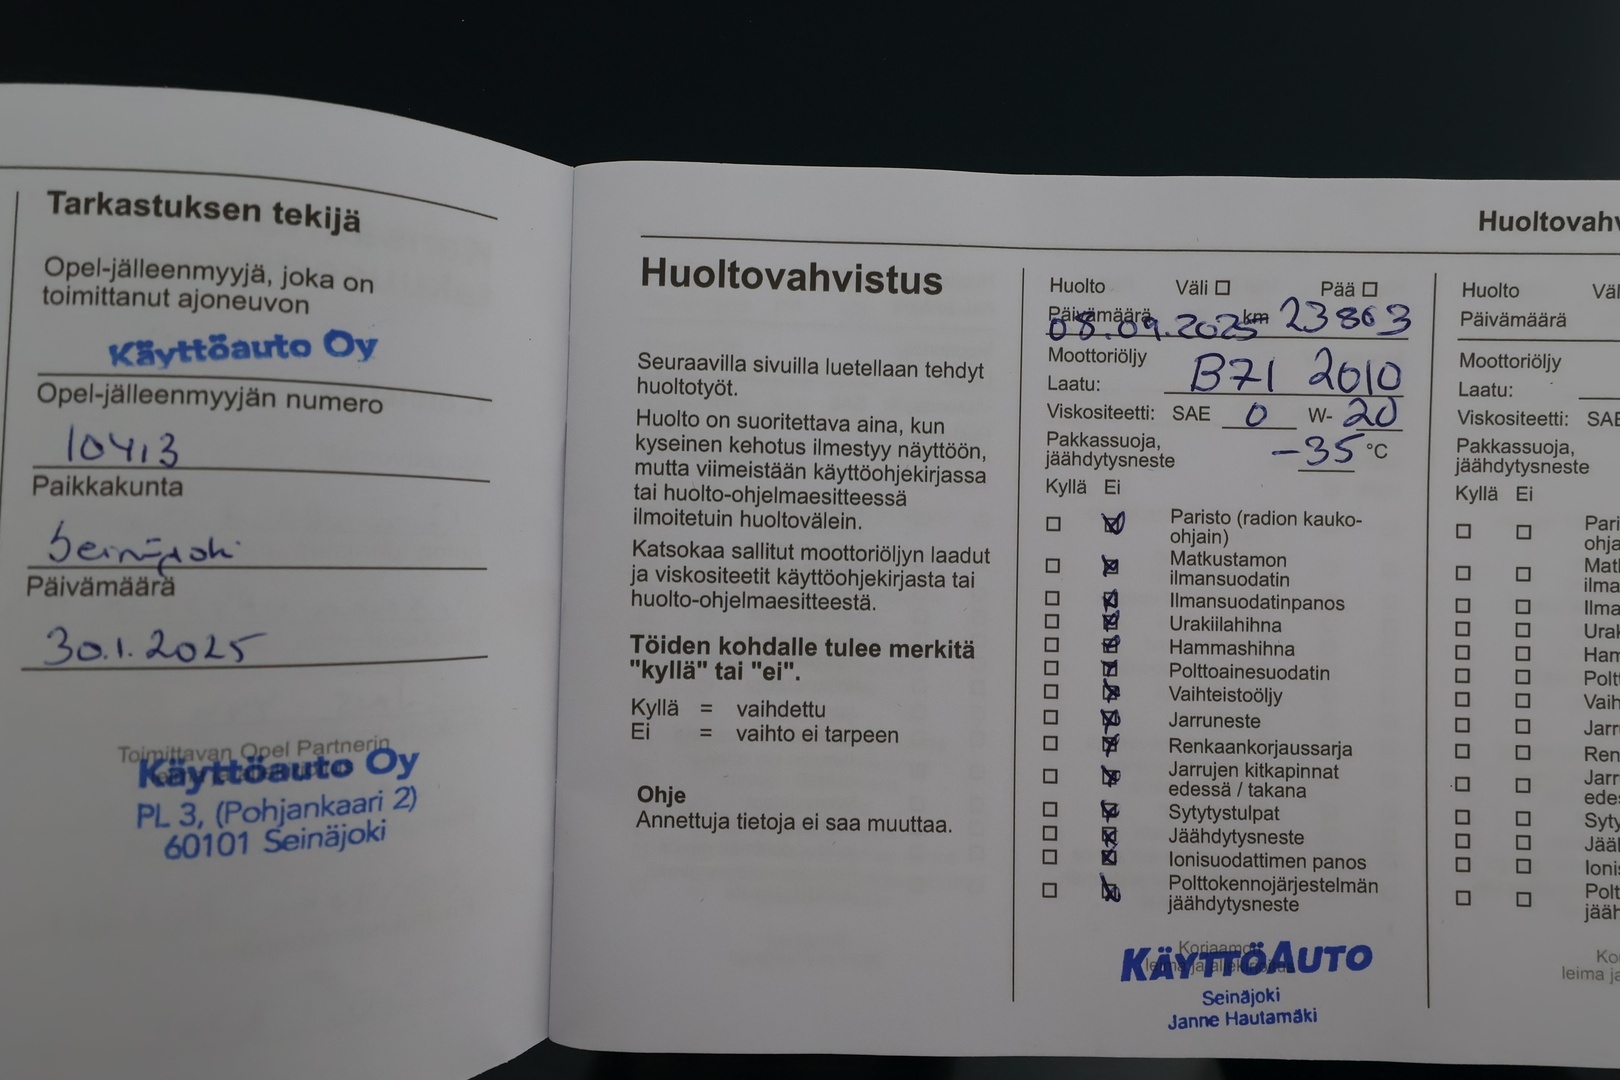 Tarkastuksen tekijä
Opel-jälleenmyyjä, joka on
toimittanut ajoneuvon
Käyttöauto Oy
Opel-jälleenmyyjän numero
10413
Paikkakunta
Seinäjoki
Päivämäärä
30.1.2025
Toimittavan Opel Partnerin
Käyttöauto Oy
PL 3, (Pohjankaari 2)
60101 Seinäjoki
Huoltovahvistus
Seuraavilla sivuilla luetellaan tehdyt
huoltotyöt.
Huolto on suoritettava aina, kun
kyseinen kehotus ilmestyy näyttöön,
mutta viimeistään käyttöohjekirjassa
tai huolto-ohjelmaesitteessä
ilmoitetuin huoltovälein.
Katsokaa sallitut moottoriöljyn laadut
ja viskositeetit käyttöohjekirjasta tai
huolto-ohjelmaesitteestä.
Töiden kohdalle tulee merkitä
"kyllä" tai "ei".
Kyllä = vaihdettu
Ei = vaihto ei tarpeen
Ohje
Annettuja tietoja ei saa muuttaa.
Huolto Väli Pää
Päivämäärä 08.09.2025 km 23863
Moottoriöljy
Laatu: B71 2010
Viskositeetti: SAE 0 W- 20
Pakkassuoja,
jäähdytysneste -35 °C
Kyllä Ei
Paristo (radion kauko-
ohjain)
Matkustamon
ilmansuodatin
Ilmansuodatinpanos
Urakiilahihna
Hammashihna
Polttoainesuodatin
Vaihteistoöljy
Jarruneste
Renkaankorjaussarja
Jarrujen kitkapinnat
edessä / takana
Sytytystulpat
Jäähdytysneste
Ionisuodattimen panos
Polttokennojärjestelmän
jäähdytysneste
Korjaamon
leima ja allekirjoitus
KÄYTTÖAUTO
Seinäjoki
Janne Hautamäki
Huoltovahv
Huolto Väl
Päivämäärä
Moottoriöljy
Laatu:
Viskositeetti: SAE
Pakkassuoja,
jäähdytysneste
Kyllä Ei
Pari
ohja
Matk
ilma
Ilma
Urak
Ham
Poltt
Vaih
Jarr
Ren
Jarr
edes
Syty
Jääl
Ioni
Polt
jääh
Ko
leima ja